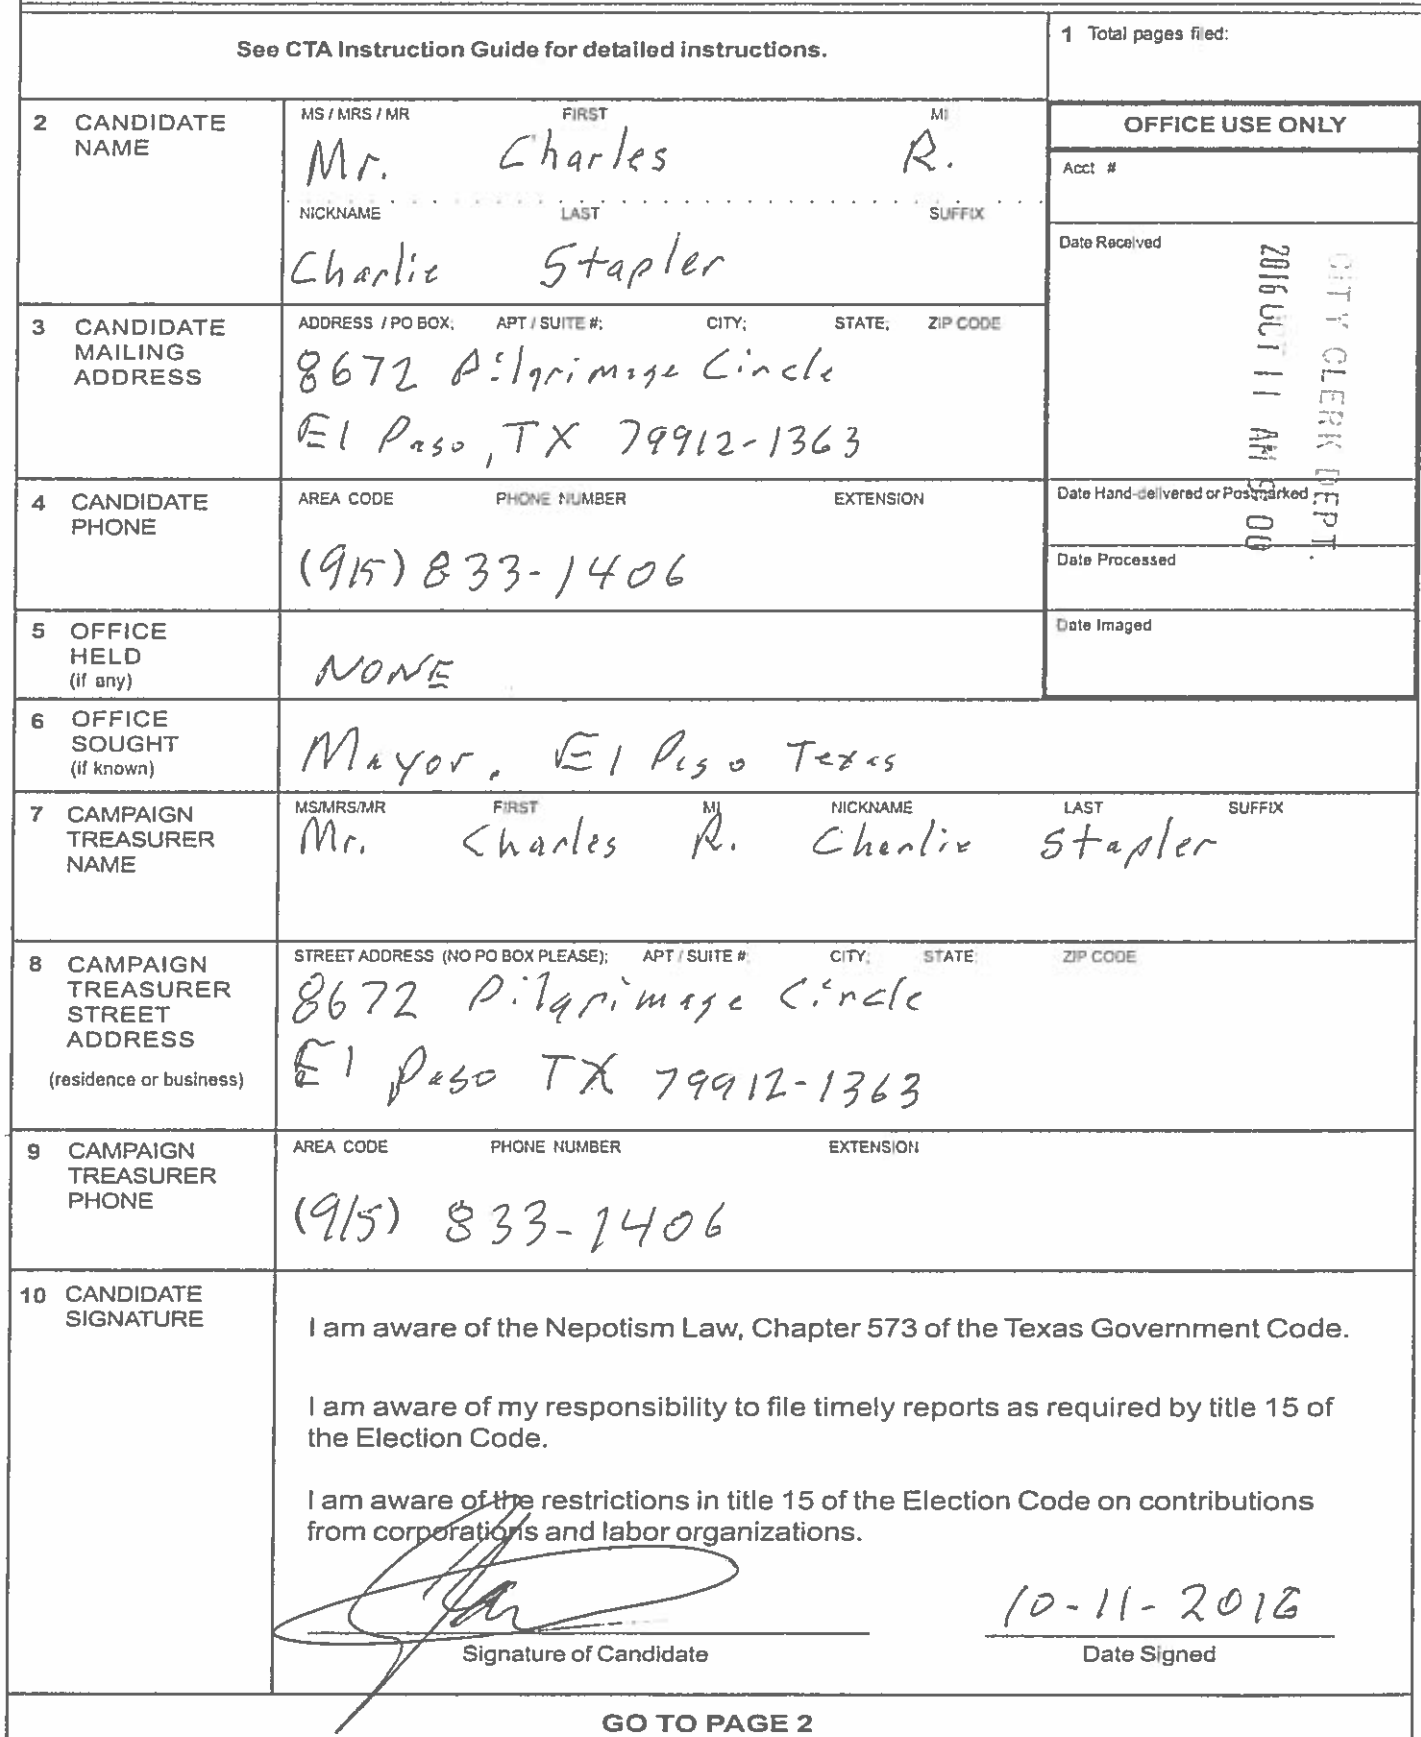 See CTA Instruction Guide for detailed instructions.
1 Total pages filed:
2 CANDIDATE NAME
MS / MRS / MR FIRST MI
Mr. Charles R.
NICKNAME LAST SUFFIX
Charlie Stapler
OFFICE USE ONLY
Acct #
Date Received
CITY CLERK DEPT.
2016 OCT 11 AM 9 00
Date Hand-delivered or Postmarked
Date Processed
Date Imaged
3 CANDIDATE MAILING ADDRESS
ADDRESS / PO BOX; APT / SUITE #; CITY; STATE; ZIP CODE
8672 Pilgrimage Circle
El Paso, TX 79912-1363
4 CANDIDATE PHONE
AREA CODE PHONE NUMBER EXTENSION
(915) 833-1406
5 OFFICE HELD (if any)
NONE
6 OFFICE SOUGHT (if known)
Mayor, El Paso Texas
7 CAMPAIGN TREASURER NAME
MS/MRS/MR FIRST MI NICKNAME LAST SUFFIX
Mr. Charles R. Charlie Stapler
8 CAMPAIGN TREASURER STREET ADDRESS
(residence or business)
STREET ADDRESS (NO PO BOX PLEASE); APT / SUITE #; CITY; STATE; ZIP CODE
8672 Pilgrimage Circle
El Paso TX 79912-1363
9 CAMPAIGN TREASURER PHONE
AREA CODE PHONE NUMBER EXTENSION
(915) 833-1406
10 CANDIDATE SIGNATURE
I am aware of the Nepotism Law, Chapter 573 of the Texas Government Code.
I am aware of my responsibility to file timely reports as required by title 15 of
the Election Code.
I am aware of the restrictions in title 15 of the Election Code on contributions
from corporations and labor organizations.
10-11-2016
Signature of Candidate
Date Signed
GO TO PAGE 2